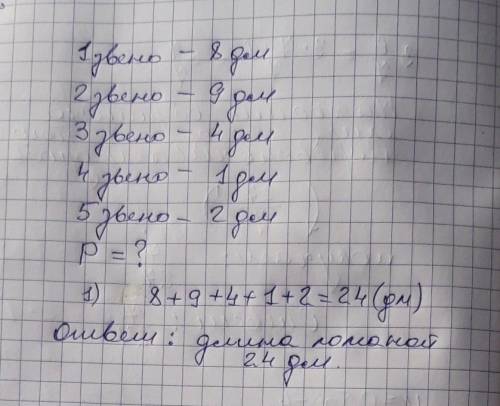 1 звено – 8 дм
2 звено – 9 дм
3 звено – 4 дм
4 звено – 1 дм
5 звено – 2 дм
P = ?
1) 8 + 9 + 4 + 1 + 2 = 24 (дм)
Ответ: длина ломаной
24 дм.